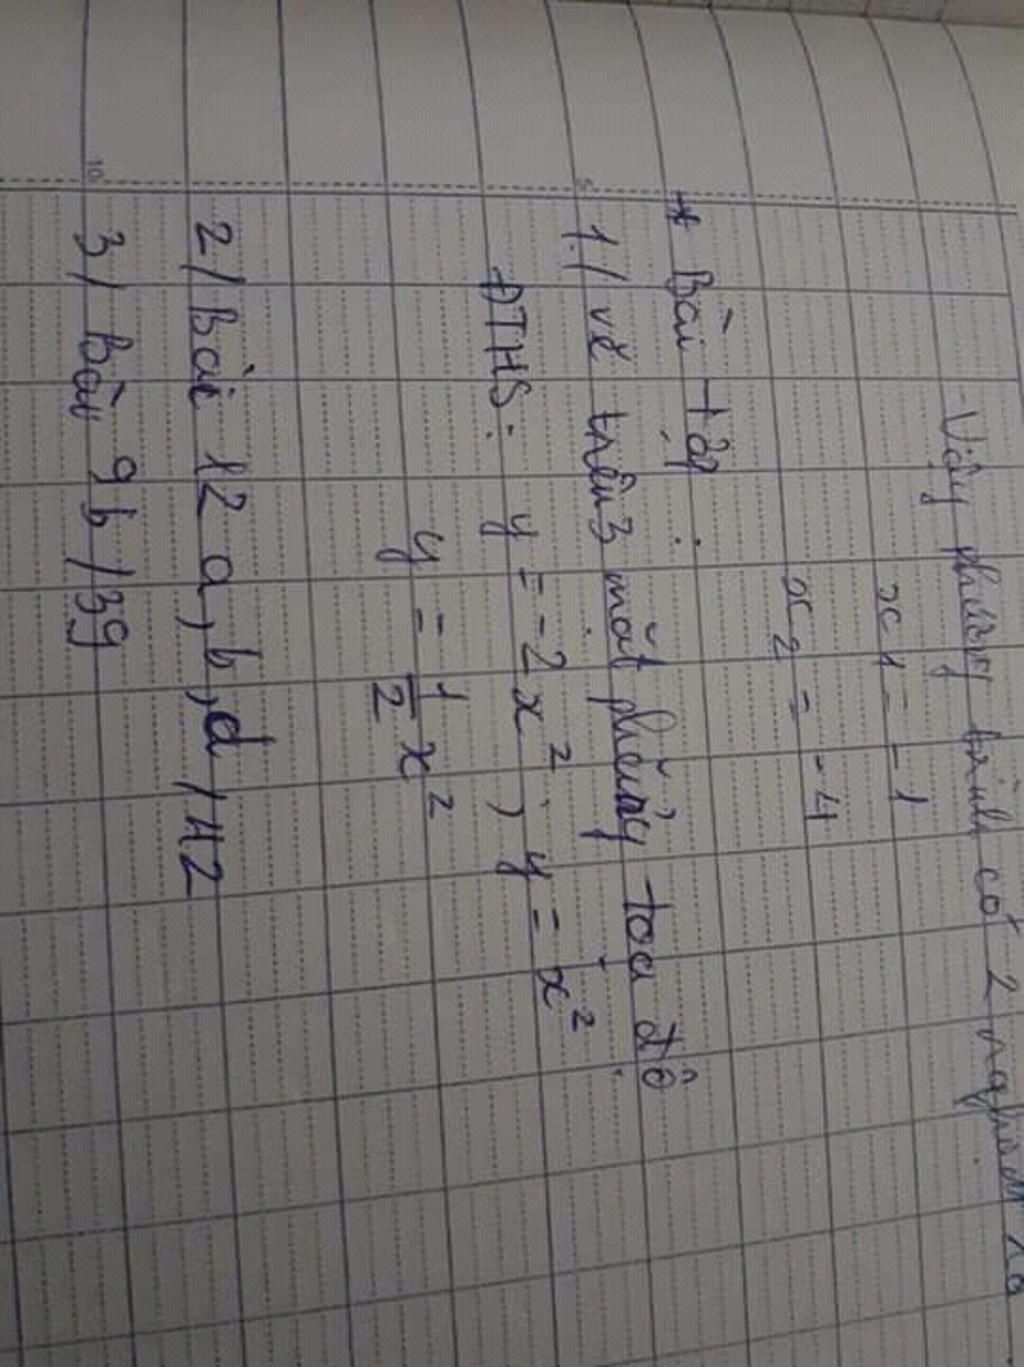 Vậy phương trình có 2 nghiệm là
x1 = -1
x2 = -4
* Bài tập :
1/ vẽ trên mặt phẳng tọa độ
ĐTHS: y = -2x² ; y = x²
y = 1/2 x²
2/ Bài 12 a, b, d / 42
3/ bài 9b / 39
5
10